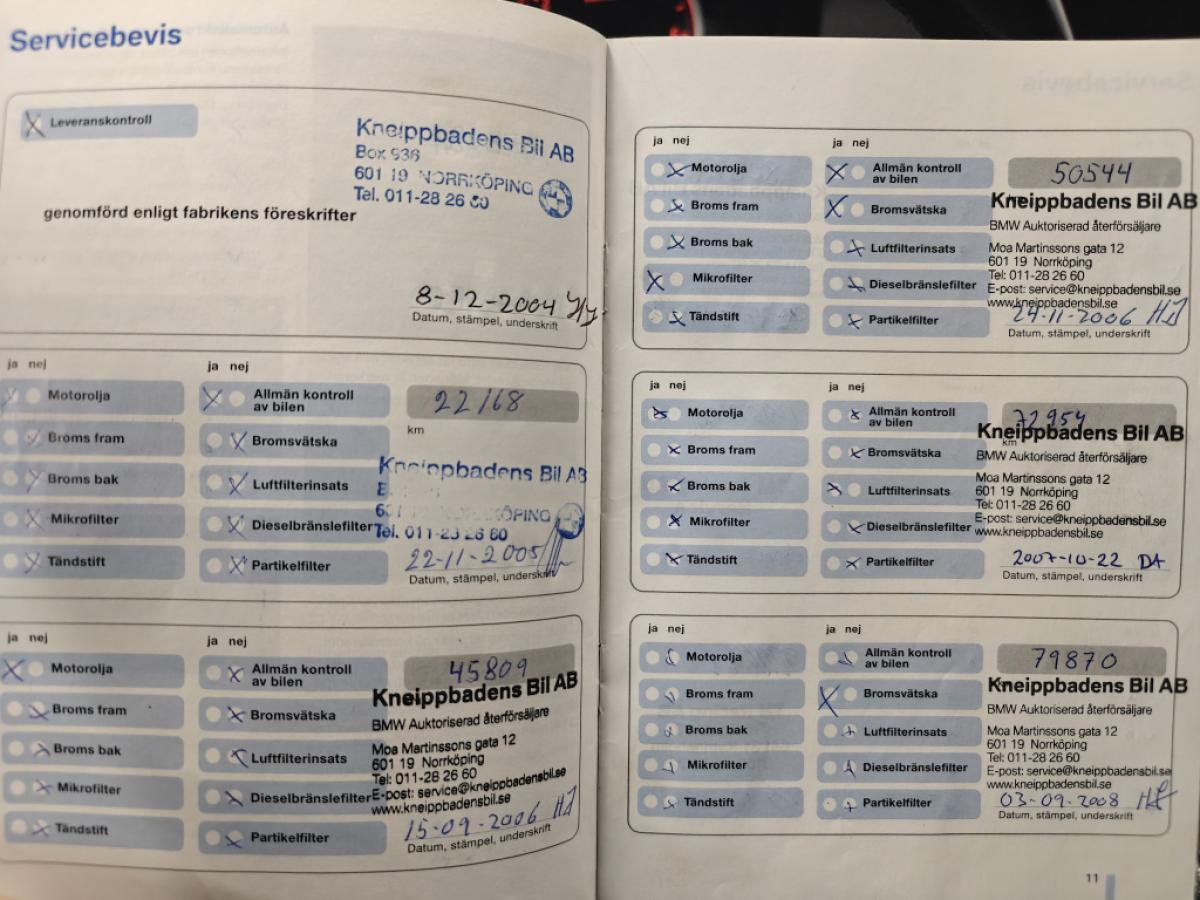 Servicebevis
Leveranskontroll
Kneippbadens Bil AB
Box 936
601 19 NORRKÖPING
Tel. 011-28 26 60
genomförd enligt fabrikens föreskrifter
8-12-2004
Datum, stämpel, underskrift
ja nej
ja nej
Motorolja
Allmän kontroll
av bilen
22168
km
Broms fram
Bromsvätska
Broms bak
Luftfilterinsats
Kneippbadens Bil AB
Mikrofilter
Dieselbränslefilter
Tel. 011-28 26 60
Tändstift
Partikelfilter
22-11-2005
Datum, stämpel, underskrift
ja nej
ja nej
Motorolja
Allmän kontroll
av bilen
45809
Broms fram
Bromsvätska
Broms bak
Luftfilterinsats
Mikrofilter
Dieselbränslefilter
Tändstift
Partikelfilter
Kneippbadens Bil AB
BMW Auktoriserad återförsäljare
Moa Martinssons gata 12
601 19 Norrköping
Tel: 011-28 26 60
E-post: service@kneippbadensbil.se
www.kneippbadensbil.se
15-09-2006 HJ
Datum, stämpel, underskrift
ja nej
ja nej
Motorolja
Allmän kontroll
av bilen
50544
Broms fram
Bromsvätska
Broms bak
Luftfilterinsats
Mikrofilter
Dieselbränslefilter
Tändstift
Partikelfilter
Kneippbadens Bil AB
BMW Auktoriserad återförsäljare
Moa Martinssons gata 12
601 19 Norrköping
Tel: 011-28 26 60
E-post: service@kneippbadensbil.se
www.kneippbadensbil.se
24-11-2006 HJ
Datum, stämpel, underskrift
ja nej
ja nej
Motorolja
Allmän kontroll
av bilen
72954
km
Broms fram
Bromsvätska
Broms bak
Luftfilterinsats
Mikrofilter
Dieselbränslefilter
Tändstift
Partikelfilter
Kneippbadens Bil AB
BMW Auktoriserad återförsäljare
Moa Martinssons gata 12
601 19 Norrköping
Tel: 011-28 26 60
E-post: service@kneippbadensbil.se
www.kneippbadensbil.se
2007-10-22 DA
Datum, stämpel, underskrift
ja nej
ja nej
Motorolja
Allmän kontroll
av bilen
79870
Broms fram
Bromsvätska
Broms bak
Luftfilterinsats
Mikrofilter
Dieselbränslefilter
Tändstift
Partikelfilter
Kneippbadens Bil AB
BMW Auktoriserad återförsäljare
Moa Martinssons gata 12
601 19 Norrköping
Tel: 011-28 26 60
E-post: service@kneippbadensbil.se
www.kneippbadensbil.se
03-09-2008
Datum, stämpel, underskrift
11